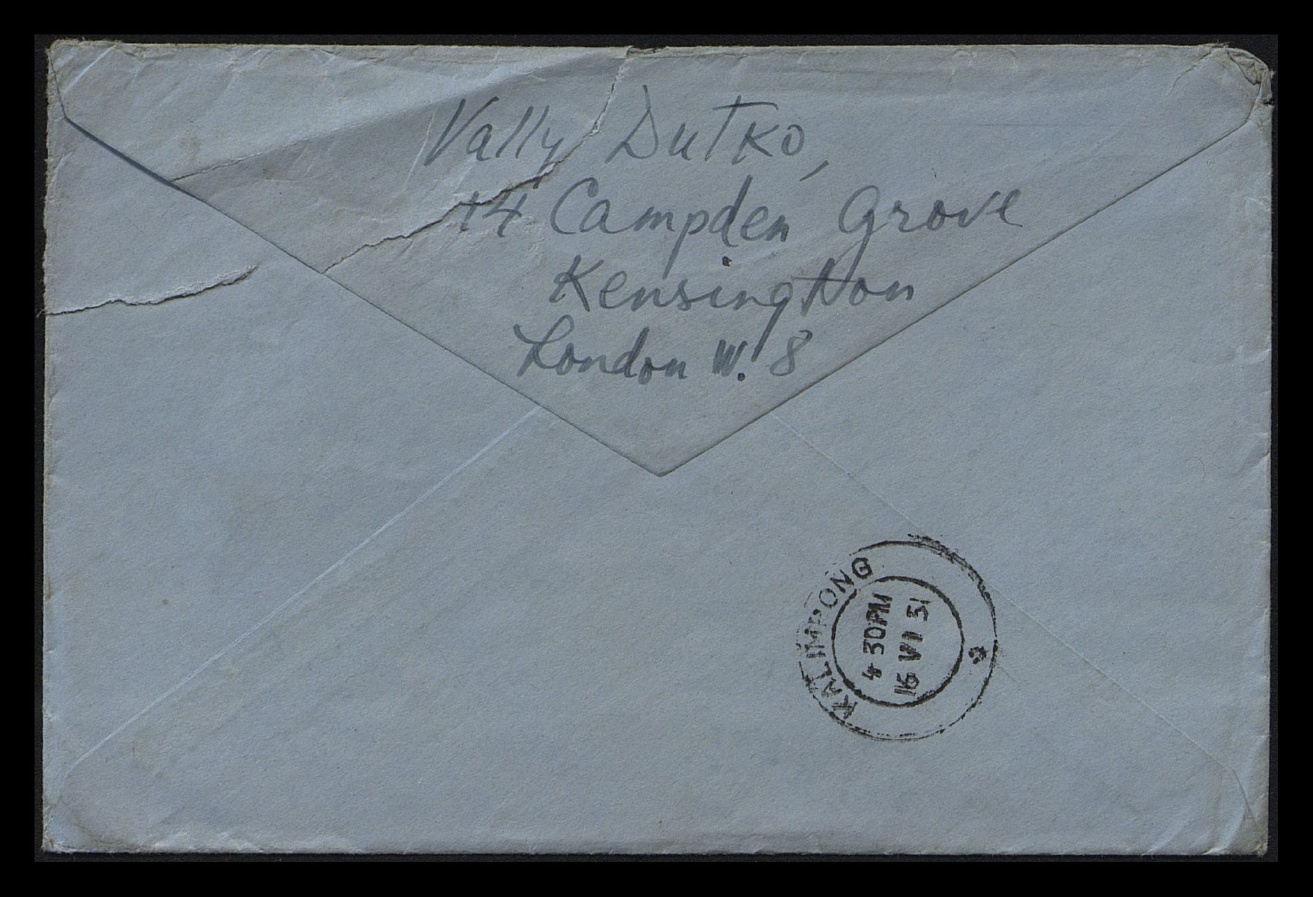 Vally Dutko,
14 Campden Grove
Kensington
London W. 8
KALIMPONG
4 30PM
16 VI 51